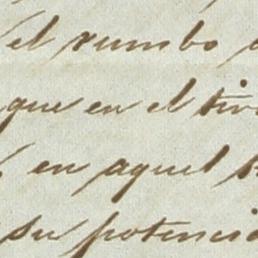 el rumbo
que en el
en aquel
su potencia